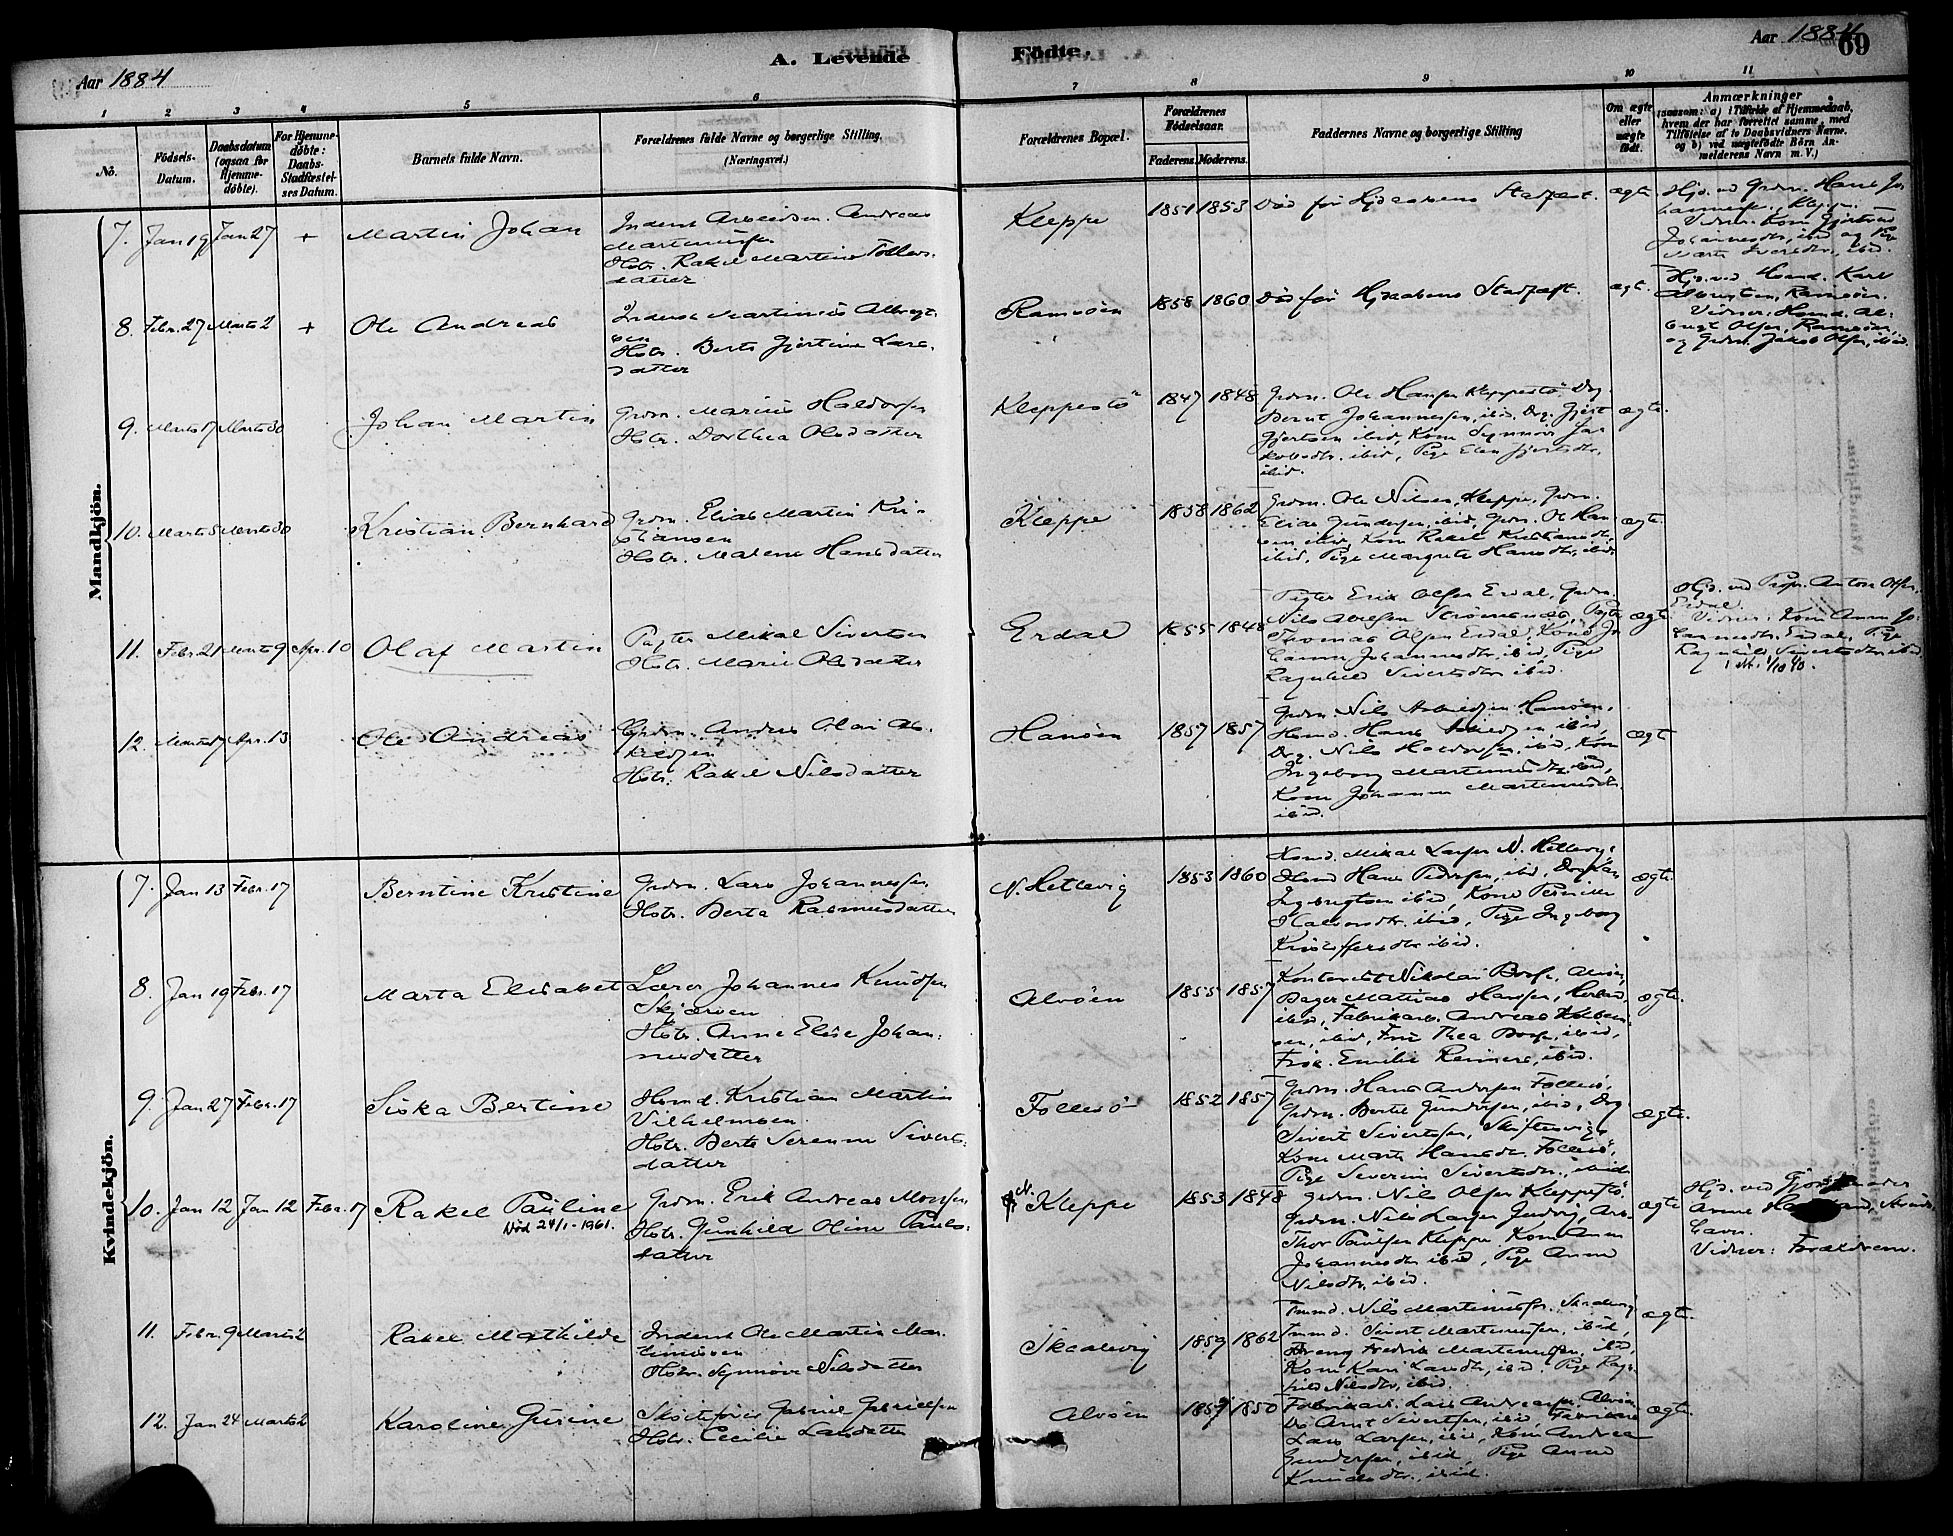 Aar 1884
A. Levende
Födte.
Aar 1884
69
1
2
3
4
5
6
7
8
9
10
11
No.
Födsels-
Datum.
Daabsdatum
(ogsaa for
Hjemme-
döbte).
For Hjemme-
döbte:
Daabs-
Stadfæstel-
ses Datum.
Barnets fulde Navn.
Forældrenes fulde Navne og borgerlige Stilling.
(Næringsvei.)
Forældrenes Bopæl.
Forældrenes
Födselsaar.
Faderens.
Moderens.
Faddernes Navne og borgerlige Stilling
Om ægte
eller
uægte
födt.
Anmærkninger
(saasom: a) i Tilfælde af Hjemmedaab,
hvem der har forrettet samme, med
Tilföielse af to Daabsvidners Navne,
og b) ved uægtefödte Börn An-
melderens Navn m. V.)
Mandkjön.
7. Jan 19 Jan 27 + Martin Johan
Inderst Arbeidsm. Andreas
Martinussen
Hstr. Rakel Martine Tollevs-
datter
Kleppe 1851 1853 Död før Hjdaabens Stadfæst. ægte
Hjd. ved Grdm. Hans Jo-
hannessen, Kleppe.
Vidner: Kone Gjertrud
Johannesdtr, ibid og Pige
Marta Iversdtr, ibid.
8. Febr. 27 Marts 2 + Ole Andreas
Inderst Martinus Albregt-
sen
Hstr. Berte Gjertine Lars-
datter
Ramsöen 1858 1860 Död før Hjdaabens Stadfæst. ægte.
Hjd. ved Husmd. Karl
Albrigtsen, Ramsöen.
Vidner: Husmd. Al-
brigt Olsen, Ramsöen,
og Grdm. Jakob Olsen, ibid.
9. Marts 17 Marts 30 Johan Martin
Grdm. Marius Haldorsen
Hstr. Dorthea Olsdatter
Kleppestö 1847 1848
Grdm. Ole Hansen Kleppestö, Drg.
Bernt Johannessen, ibid, Drg. Gjert
Gjertsen ibid, Kone Synnöve Ja-
kobsdtr. ibid, Pige Elen Gjertsdtr,
ibid.
ægte.
10. Marts 5 Marts 30 Kristian Bernhard
Grdm. Elias Martin Kri-
stiansen
Hstr. Malene Hansdatter
Kleppe 1858 1862
Grdm. Ole Nilsen, Kleppe, Grdm.
Elias Gundersen, ibid, Grdm. Ole Han-
sen ibid, Kone Rakel Kristiansdtr,
ibid, Pige Margrete Hansdtr, ibid.
ægte
11. Febr. 21 Marts 9 Apr. 10 Olaf Martin
Pagter Mikal Sivertsen
Hstr. Marie Olsdatter
Erdal 1855 1848
Pagter Erik Olsen Erdal, Grdm.
Nils Strömsnæs, Pagter
Thomas Olsen Erdal, Kone Jo-
hanne Johannesdtr, ibid, Pige
Ragnhild Sivertsdtr ibid
ægte
Hjd. ved Propr. Anton Olsen,
Erdal.
Vidner: Kone Anna Jo-
hannesdtr, Erdal, Pige
Ragnhild Sivertsdtr ibid.
12. Marts 17 Apr. 13 Ole Andreas
Grdm. Anders Olai As-
kildsen
Hstr. Rakel Nilsdatter
Hanöen 1857 1857
Grdm. Nils Askildsen Hanöen,
Husmd. Hans Askildsen, ibid,
Drg. Nils Haldorsen, ibid, Kone
Ingeborg Martinusdtr, ibid,
Kone Johanne Martinusdtr.
ibid.
ægte
Kvindekjön.
7. Jan 13 Febr. 17 Berntine Kristine
Grdm. Lars Johannessen
Hstr. Berta Rasmusdatter
N. Hetlevig 1853 1860
Husmd. Mikal Larsen N. Hetlevig,
Husmd Hans Pedersen, ibid, Drg Jan
Ingebrigtsen ibid, Kone Pernille
Halvorsdtr. ibid, Pige Ingeborg
Kristoffersdtr ibid.
ægte.
8. Jan 19 Febr. 17 Marta Elisabet
Lærer Johannes Knudsen
Skjærven
Hstr. Anne Elise Johan-
nesdatter
Alvöen 1855 1857
Kontorist Nikolai Alvöen,
Bager Mathias Hansen,
ibid, Fabrikarb. Andreas
sen, ibid, Fru Thea ibid,
Frök. Emilie ibid.
ægte.
9. Jan 27 Febr. 17 Siska Bertine
Husmd. Kristian Martin
Vilhelmsen
Hstr. Berte Serenne Siverts-
datter
Follesö 1852 1857
Grdm. Hans Andersen Follesö,
Grdm. Bertel Gundersen, ibid, Drg.
Sivert Sivertsen, Skiftesvig,
Kone Marta Hansdtr. Follesö,
Pige Severine Sivertsdtr, ibid.
ægte.
10. Jan 12 Jan 12 Febr. 17 Rakel Pauline
Död 24/1-1961.
Grdm. Erik Andreas Monsen
Hstr. Gunhild Oline Pauls-
datter
N. Kleppe 1853 1848
Grdm. Nils Olsen Kleppestö
Grdm. Nils Larsen
Thor Paulsen Kleppe Kone Anna
Johannesdtr ibid, Pige Anna
Nilsdtr, ibid.
ægte
Hjd. ved Gjordemoder
Anne
havn.
Vidner: Forældrene.
11. Febr. 9 Marts 2 Rakel Mathilde
Inderst Ole Martin Mar-
tinusen
Hstr. Synnöve Nilsdatter
Skaalevig 1859 1862
Nils Martinussen, Skaalevig
Sivert Martinussen, ibid,
Dreng Fredrik Martinussen, ibid,
Kone Kari Larsdtr, ibid. Pige Ragn-
hild Nilsdtr, ibid.
ægte.
12. Jan 24 Marts 2 Karoline Gurine
Gabriel Gabrielsen
Hstr. Cecilie Larsdatter
Alvöen 1859 1850
Fabrikarb. Lars Andreassen, Alvöen,
Do Arnt Sivertsen, ibid, Fabrikarb
Lars Larsen, ibid, Kone Andrea
Gundersen, ibid, Pige Anna
Knudsdtr., ibid.
ægte.